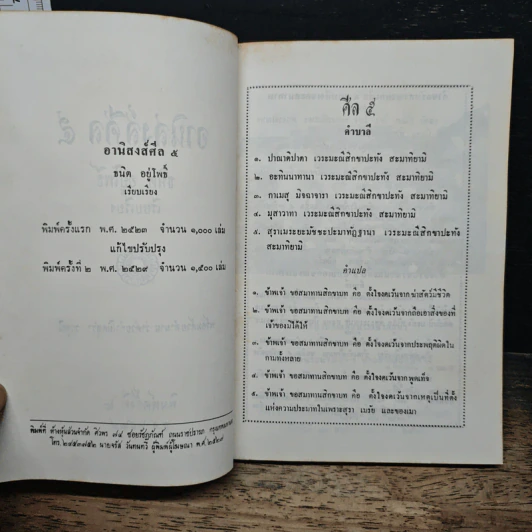 อานิสงส์ศีล ๕
ธนิต อยู่โพธิ์
เรียบเรียง
พิมพ์ครั้งแรก พ.ศ. ๒๕๒๓ จำนวน ๑,๐๐๐ เล่ม
แก้ไขปรับปรุง
พิมพ์ครั้งที่ ๒ พ.ศ. ๒๕๒๙ จำนวน ๑,๕๐๐ เล่ม
พิมพ์ที่ ห้างหุ้นส่วนจำกัด ศิวพร ๗๔ ซอยรัชฎภัณฑ์ ถนนราชปรารภ
โทร. นายจรัส วันทนทวี ผู้พิมพ์ผู้โฆษณา
ศีล ๕
คำบาลี
๑. ปาณาติปาตา เวระมะณีสิกขาปะทัง สะมาทิยามิ
๒. อะทินนาทานา เวระมะณีสิกขาปะทัง สะมาทิยามิ
๓. กาเมสุ มิจฉาจารา เวระมะณีสิกขาปะทัง สะมาทิยามิ
๔. มุสาวาทา เวระมะณีสิกขาปะทัง สะมาทิยามิ
๕. สุราเมระยะมัชชะปะมาทัฏฐานา เวระมะณีสิกขาปะทัง
สะมาทิยามิ
คำแปล
๑. ข้าพเจ้า ขอสมาทานสิกขาบท คือ ตั้งใจงดเว้นจากฆ่าสัตว์มีชีวิต
๒. ข้าพเจ้า ขอสมาทานสิกขาบท คือ ตั้งใจงดเว้นจากถือเอาสิ่งของที่
เจ้าของมิได้ให้
๓. ข้าพเจ้า ขอสมาทานสิกขาบท คือ ตั้งใจงดเว้นจากประพฤติผิดใน
กามทั้งหลาย
๔. ข้าพเจ้า ขอสมาทานสิกขาบท คือ ตั้งใจงดเว้นจาก พูดเท็จ
๕. ข้าพเจ้า ขอสมาทานสิกขาบท คือ ตั้งใจงดเว้นจากเหตุเป็นที่ตั้ง
แห่งความประมาทในเพราะสุรา เมรัย และของเมา